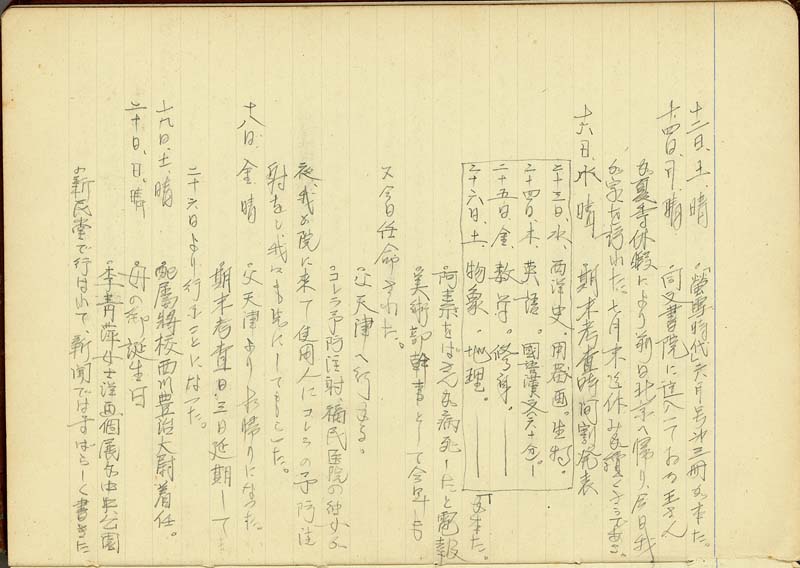 十二日、土 晴 「螢雪時代」六月号第三冊が来た。
十四日、月、晴 同文書院に這入っておる王さん
が夏季休暇により前日北京へ帰り、今日我
が家を訪れた。七月末迄休みが続くそうである。
十六日、水 晴 期末考査時間割発表
二十三日、水、西洋史、用器画。生物。
二十四日、木、英語。國語漢文(六十分)。
二十五日、金、数学。修身。
二十六日、土、物象。地理。
阿素をばさんが病死したと電報
が来た。
美術部幹事として今年も
又今日任命された。
父天津へ行かる。
コレラ予防注射、福民医院の
夜、我が院に来て使用人にコレラの予防注
射をし我々も先にしてもらった。
十八日、金 晴 父天津よりお帰りになった。
期末考査日三日延期して
二十六日より行ふことになった。
十九日、土、晴 配属將校西川豊治大尉着任。
二十日、日、晴 母の御誕生日
李青萍女士洋画個展が中央公園
の新民堂で行はれて、新聞ではすばらしく書きた